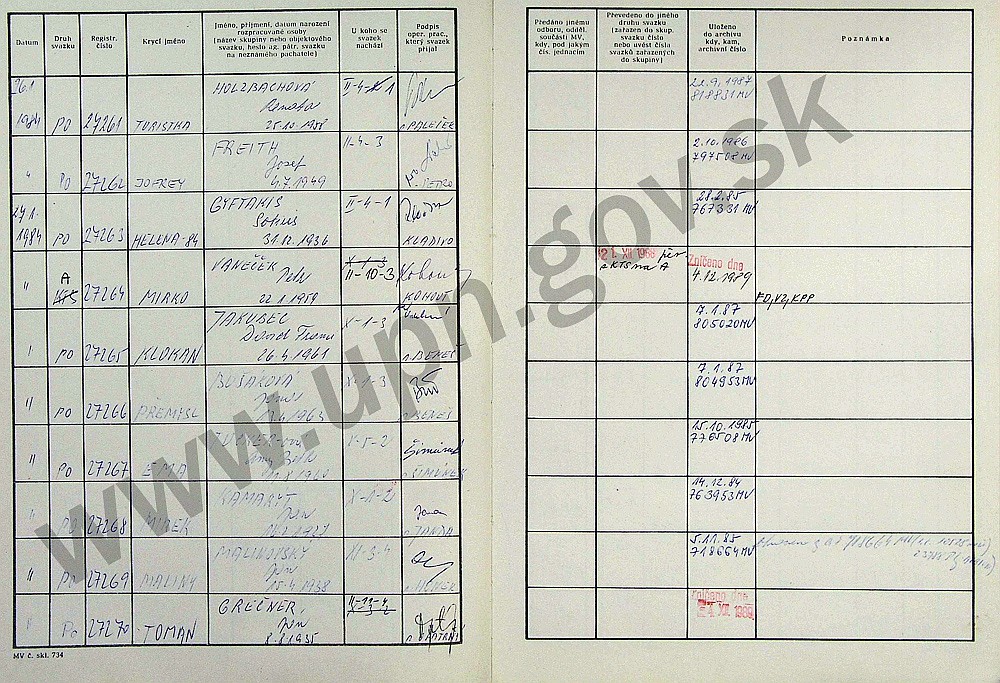 Datum
Druh svazku
Registr. číslo
Krycí jméno
Jméno, příjmení, datum narození
rozpracované osoby
(název skupiny nebo objektového
svazku, heslo ag. pátr. svazku
na neznámého pachatele)
U koho se
svazek
nachází
Podpis
oper. prac.,
který svazek
přijal
Předáno jinému
odboru, odděl.
součásti MV,
kdy, pod jakým
čís. jednacím
Převedeno do jiného
druhu svazku
(zařazen do skup.
svazku číslo
nebo uvést čísla
svazků zařazených
do skupiny)
Uloženo
do archivu
kdy, kam,
archivní číslo
Poznámka
26.1
1984 PO 27261 TURISTKA
HOLZBACHOVÁ
Renata
25.10.1958
II-4-1
PALEČEK
22.9.1987
818831 MV
" PO 27262 JOFREY
FREITH
Josef
4.7.1949
II-4-3
PETRO
2.10.1986
797508 MV
27.1.
1984 PO 27263 HELENA-84
GYFTAKIS
31.12.1936
II-4-1
KLADIVO
28.2.85
767331 MV
" A 27264 MIRKO
VANĚČEK
Petr
22.1.1959
II-10-3
KOHOUT
21. XII 1988
KTS na A
Zničeno dne
4.12.1989
FO, VZ, KPP
PO 27265 KLOKAN
JAKUBEC
David
26.4.1961
X-1-3
BENEŠ
7.1.87
805020 MV
" PO 27266 PREMYSL
X-1-3
BENEŠ
7.1.87
804953 MV
" PO 27267 EMA
X-5-2
Šimůnek
ŠIMŮNEK
15.10.1985
776508 MV
PO 27268 MIREK
KAMARYT
Jan
X-1-2
JANDA
14.12.84
763953 MV
" PO 27269 MALINY
MALINOVSKÝ
Jan
15.4.1938
XI-3-4
5.11.85
718664 MV
PO 27270 TOMAN
GREČNER,
Ján
8.8.1935
Zničeno dne
XII. 1989
MV č. skl. 734
www.upn.gov.sk